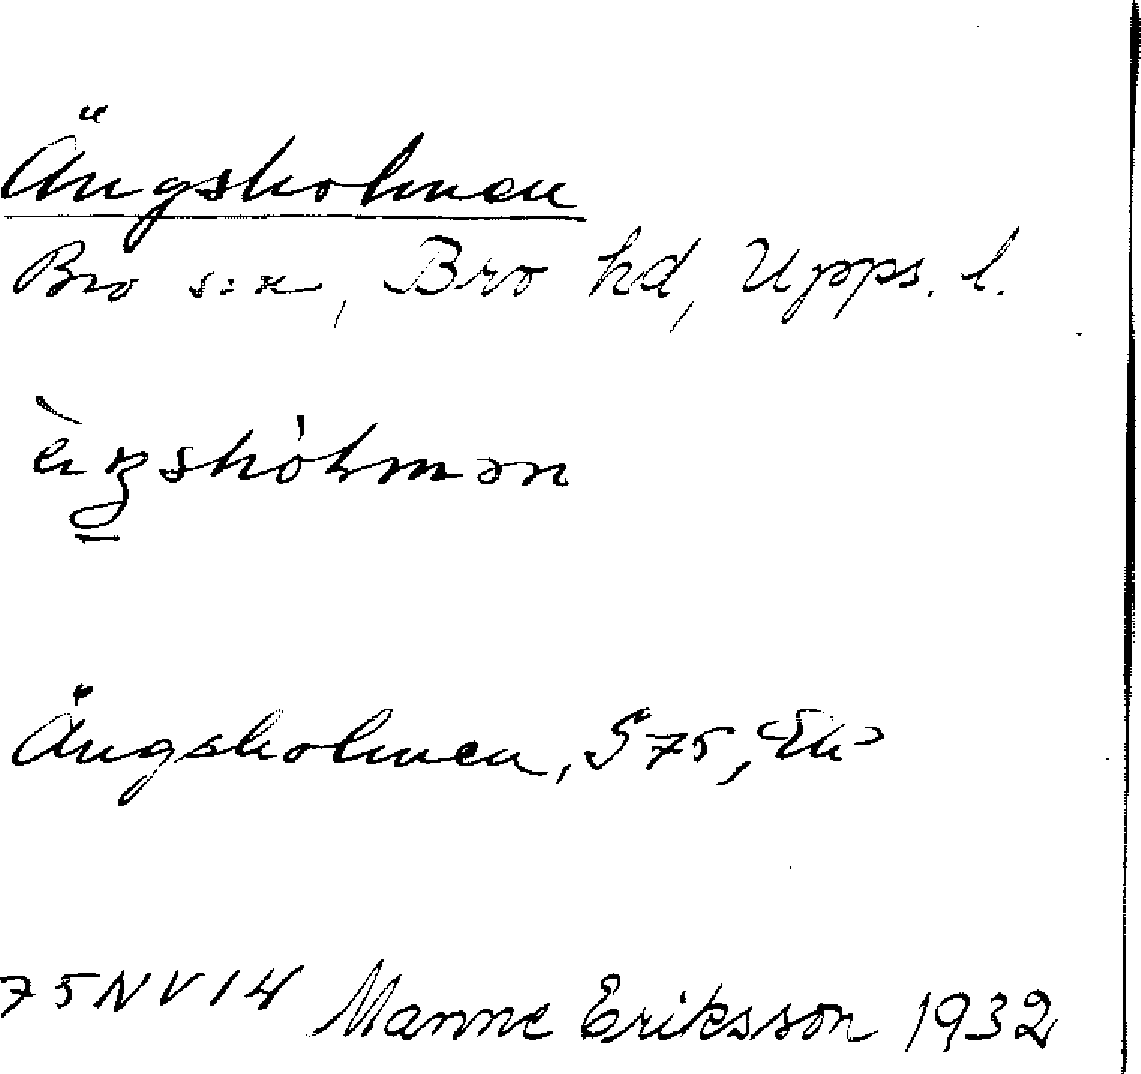 Ängsholmen
Bro s:n, Bro hd, Upps. l.
Ängsholmen, S 75, Ek
75NV14 Manne Eriksson 1932